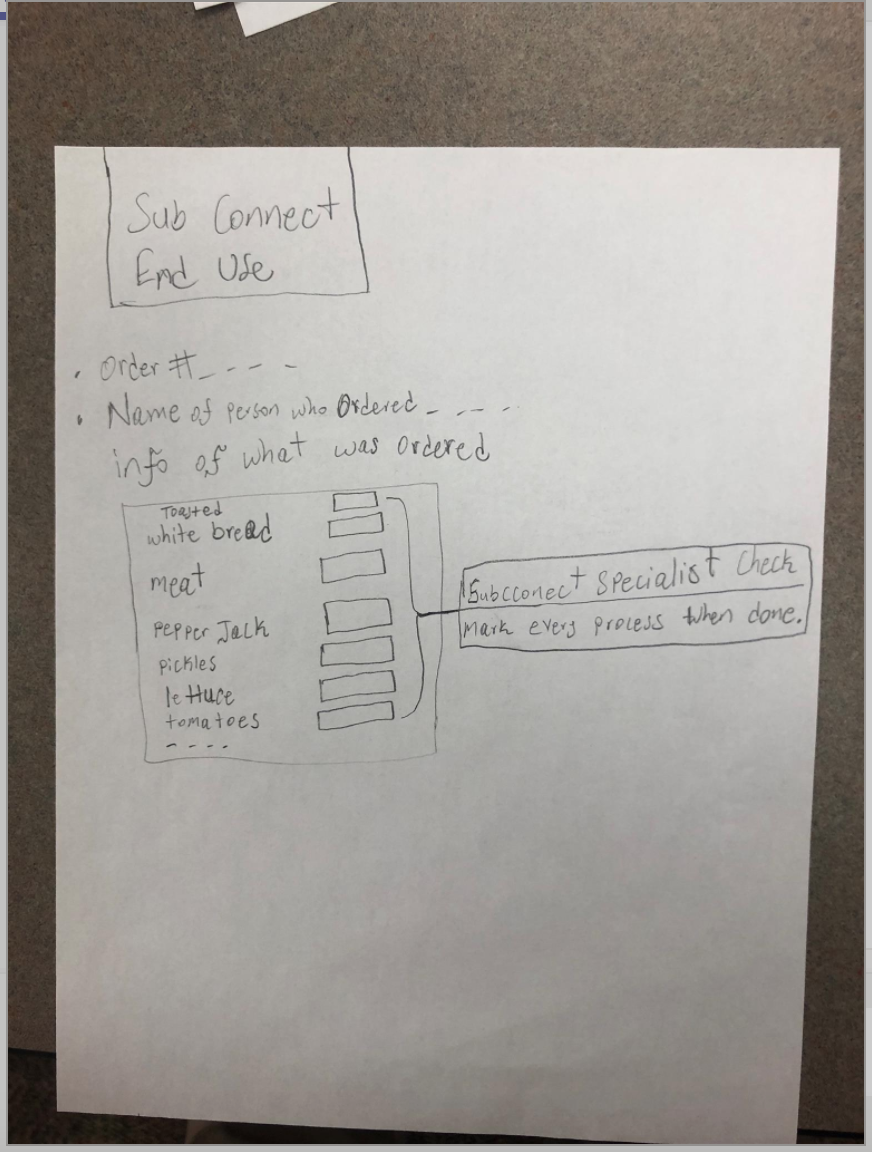 Sub Connect
End Use
• Order #_ - - -
• Name of person who Ordered _ - - - .
info of what was ordered
Toasted
white bread
meat
Pepper Jack
pickles
lettuce
tomatoes
- - - -
Subcconect Specialist Check
mark every process when done.